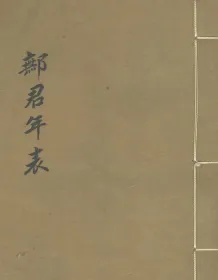 鄭君年表